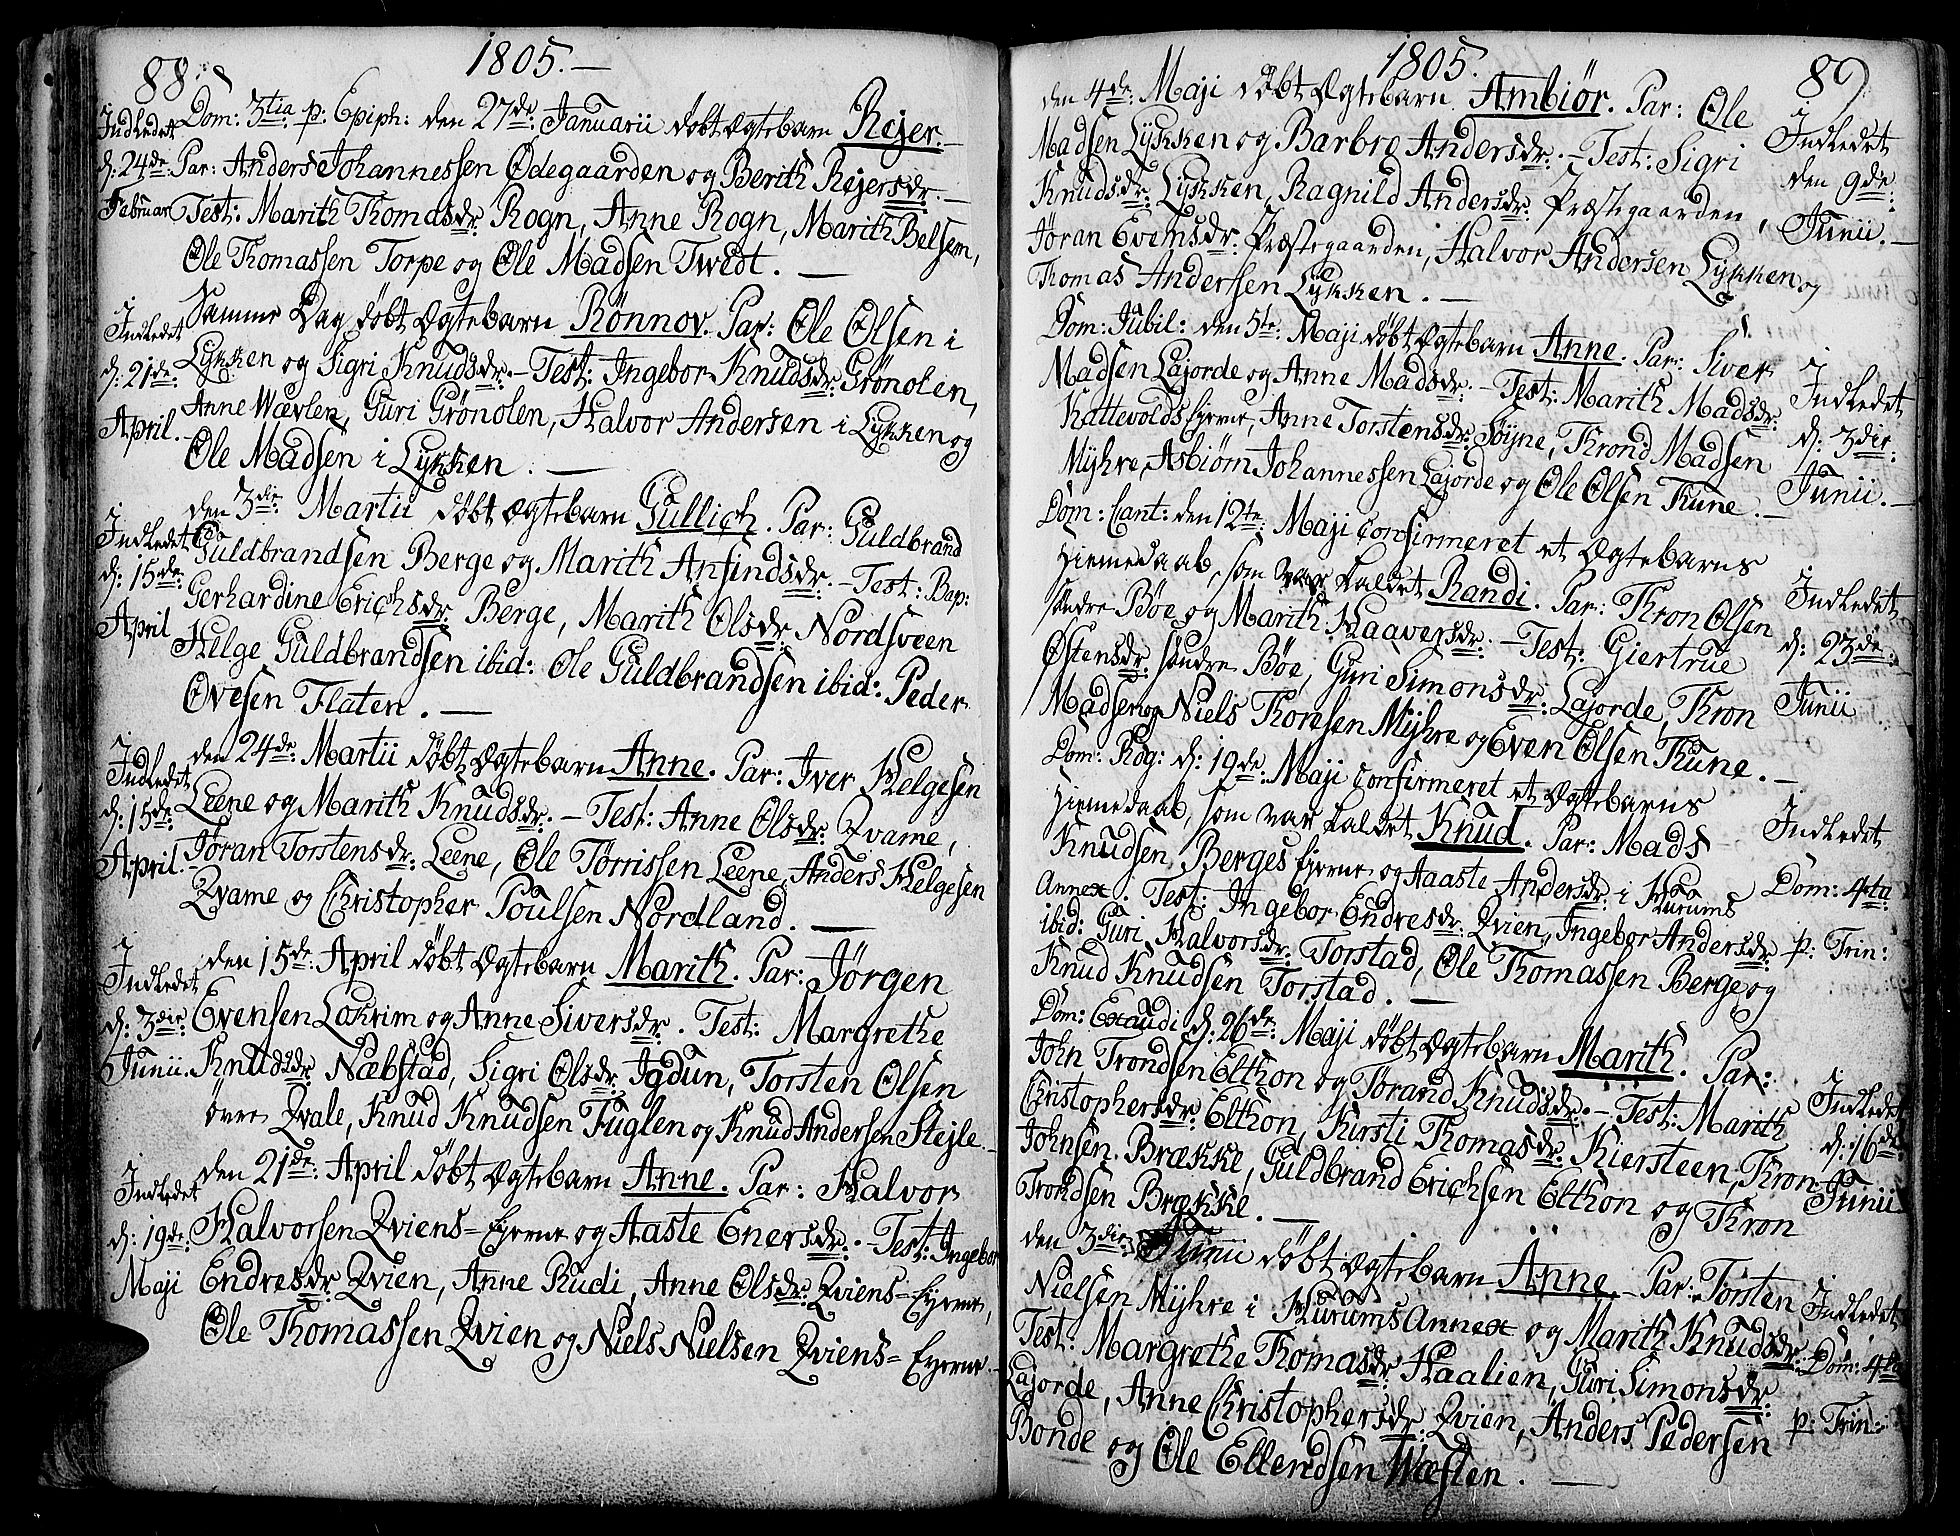 88.
1805.
Dom: 3tia p: Epiph: den 27de Januarii døbt Ægtebarn Rejer.
Par: Anders Johannessen Ødegaarden og Berith Rejersdr.
Test: Marith Thomasdr. Rogn, Anne Rogn, Marith Belsem,
Ole Thomassen Torpe og Ole Madsen Twedt.
Indledet
d: 24de
Februar
Samme Dag døbt Ægtebarn Rönnov. Par: Ole Olsen i
Lykken og Sigri Knudsdr. Test: Ingebor Knudsdr: Grönolen,
Anne Wævlen, Guri Grönolen, Halvor Andersen i Lykken og
Ole Madsen i Lykken.
Indledet
d: 21de:
April.
den 3die Martii døbt Ægtebarn Gullich. Par: Guldbrand
Guldbrandsen Berge og Marith Anfindsdr. Test: Bap:
Gerhardine Erichsdr. Berge, Marith Olsdr. Nordsveen
Helge Guldbrandsen ibid: Ole Guldbrandsen ibid: Peder
Ovesen Flaten.
Indledet
d: 15de:
April
den 24de: Martii døbt Ægtebarn Anne. Par: Iver Helgesen
Leene og Marith Knudsdr. Test: Anne Olsdr: Qvame,
Jøran Torstensdr: Leene, Ole Tørrissen Leene, Anders Helgesen
Qvame og Christopher Poulsen Nordland.
Indledet
d: 15de:
April.
den 15de: April døbt Ægtebarn Marith. Par: Jörgen
Evensen Lakrim og Anne Siversdr. Test: Margrethe
Knudsdr: Næbstad, Sigri Olsdr: Igdun, Torsten Olsen
øvre Qvale, Knud Knudsen Fuglen og Knud Andersen Stejle.
Indledet
d: 3die:
Junii.
den 21de: April døbt Ægtebarn Anne. Par: Halvor
Halvorsen Qviens=Ejerne og Aaste Enersdr. Test: Ingebor
Endresdr. Qvien, Anne Rudi, Anne Olsdr: Qviens=Ejerne,
Ole Thomassen Qvien og Niels Nielsen Qviens=Ejerne.
Indledet
d: 19de:
Maji
1805.
89
den 4de: Maji døbt Ægtebarn Ambiør. Par: Ole
Madsen Lykken og Barbro Andersdr. Test: Sigri
Knudsdr: Lykken, Ragnild Andersdr: Præstegaarden,
Jøran Evensdr: Præstegaarden, Halvor Andersen Lykken og
Thomas Andersen Lykken.
Indledet
den 9de:
Junii.
Dom: Jubil: den 5te: Maji døbt Ægtebarn Anne. Par: Siver
Madsen Lajorde og Anne Madsdr. Test: Marith Madsdr:
Kattevolds Ejerne, Anne Torstensdr: Søyne, Thrond Madsen
Myhre, Asbiørn Johannessen Lajorde og Ole Olsen Thune.
Indledet
d: 3die:
Junii.
Dom: Cant: den 12te: Maji confirmeret et Ægtebarns
Hiemedaab, som var kaldet Randi. Par: Thron Olsen
søndre Bøe og Marith Haaversdr. Test: Giertrue
Østensdr. søndre Bøe, Guri Simonsdr: Lajorde, Thron
Madsen og Niels Thoresen Myhre og Even Olsen Thune.
Indledet
d: 23de:
Junii
Dom: Rog: d: 19de: Maji confirmeret et Ægtebarns
Hiemedaab, som var kaldet Knud. Par: Mads
Knudsen Berges Ejerne og Aaste Andersdr: i Hurums
Annex. Test: Ingebor Endresdr: Qvien, Ingebor Andersdr:
ibid: Guri Halvorsdr: Torstad, Ole Thomassen Berge og
Knud Knudsen Torstad.
Indledet
Dom: 4ta
p: Trin:
Dom: Exaudi d: 26de: Maji døbt Ægtebarn Marith. Par:
John Trondsen Elthon og Jørand Knudsdr. Test: Marith
Christophersdr: Elthon, Kirsti Thomasdr: Kiersteen, Thron
Johnsen Brække, Guldbrand Erichsen Elthon og Thron
Trondsen Brække.
Indledet
d: 16de
Junii
den 3die Junii døbt Ægtebarn Anne. Par: Torsten
Nielsen Myhre i Hurums Annex og Marith Knudsdr:
Test: Margrethe Thomasdr: Haalien, Guri Simonsdr:
Lajorde, Anne Christophersdr: Qvien, Anders Pedersen
Bonde og Ole Ellendsen Wæflen.
Indledet
Dom: 4ta
p: Trin: